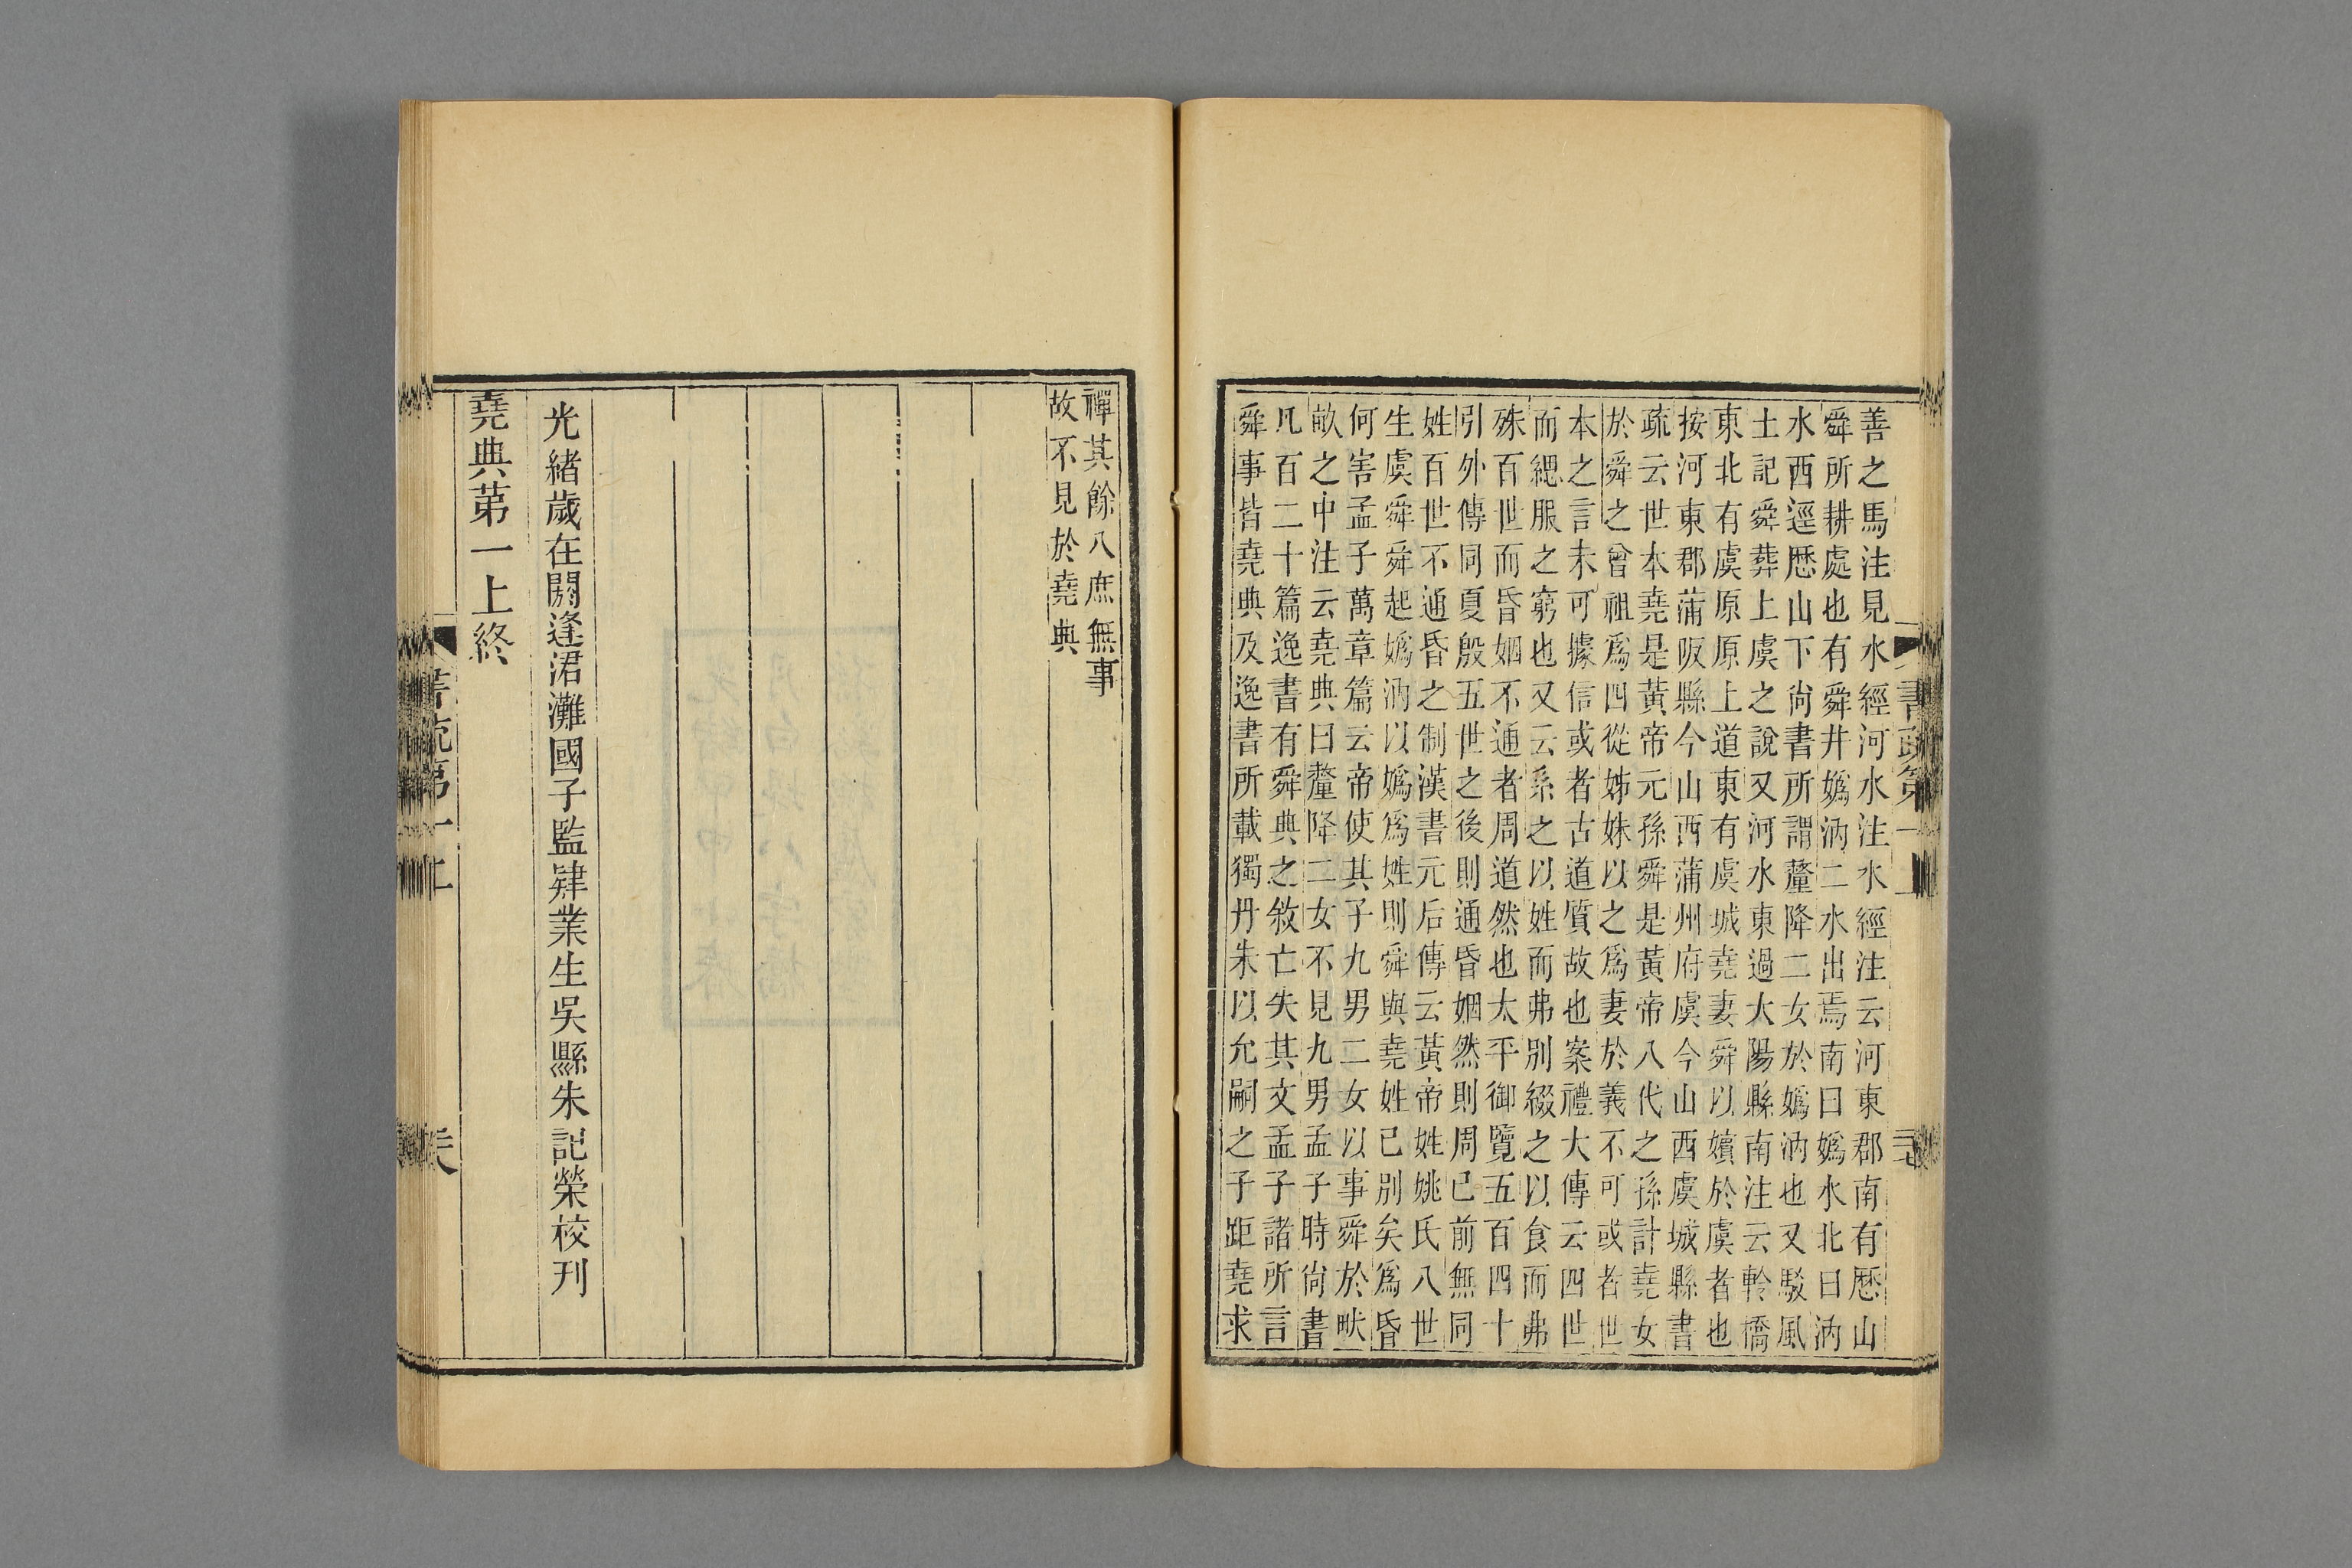 善之馬注見水經河水注水經注云河東郡南有歷山
舜所耕處也有舜井嬀汭二水出焉南曰嬀水北曰汭
水西逕歷山下尙書所謂釐降二女於嬀汭也又駁風
土記舜葬上虞之說又河水東過大陽縣南注云軨橋
東北有虞原原上道東有虞城堯妻舜以嬪於虞者也
按河東郡蒲阪縣今山西蒲州府虞今山西虞城縣書
疏云世本堯是黃帝元孫舜是黃帝八代之孫計堯女
於舜之曾祖爲四從姊妹以之爲妻於義不可或者世
本之言未可據信或者古道質故也案禮大傳云四世
而緦服之窮也又云系之以姓而弗別綴之以食而弗
殊百世而昏姻不通者周道然也太平御覽五百四十
引外傳同夏殷五世之後則通昏姻然則周已前無同
姓百世不通昏之制漢書元后傳云黃帝姓姚氏八世
生虞舜舜起嬀汭以嬀爲姓則舜與堯姓已別矣爲昏
何害孟子萬章篇云帝使其子九男二女以事舜於畎
畝之中注云堯典曰釐降二女不見九男孟子時尙書
凡百二十篇逸書有舜典之敘亡失其文孟子諸所言
舜事皆堯典及逸書所載獨丹朱以允嗣之子距堯求
書疏第一上
禪其餘八庶無事
故不見於堯典
光緒歲在閼逢涒灘國子監肄業生吳縣朱記榮校刊
堯典第一上終
書疏第一上